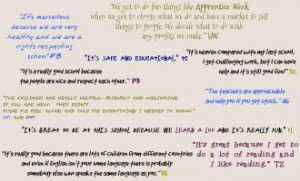 We get to do fun things like Apprentice Week
when we get to choose what we do and have a market to sell
things to people. We decide what to do with
any profits we make." VW
"It's marvellous
because we are very
healthy and we are a
rights respecting
school" FB
"It's SAFE AND EDUCATIONAL."
"It's harder compared with my last school.
I get challenging work, but I can have
help and it's still good fun"
"It's a really good school because
the people are nice and respect each other." PB
"The teachers are approachable
and help you if you get stuck."
"THE CHILDREN ARE REALLY HELPFUL, FRIENDLY AND WELCOMING
IF YOU ARE NEW. THEY DIDN'T
MAKE ME FEEL ALONE AND TOLD ME EVERYTHING I NEEDED TO KNOW."
"IT'S GREAT TO BE AT THIS SCHOOL BECAUSE WE LEARN A LOT AND IT'S REALLY FUN."
"It's really good because there are lots of children from different countries
and even if English isn't your same language there is probably
somebody else who speaks the same language as you."
"It's great because I get to
do a lot of reading and
I like reading." TZ